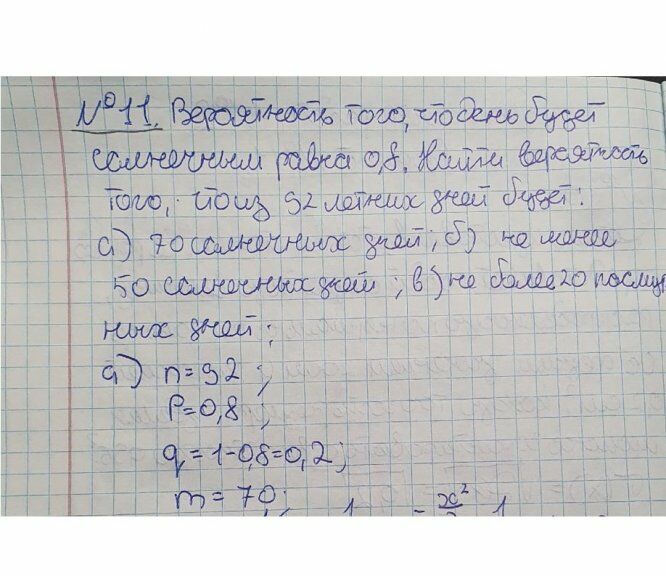 №11. Вероятность того, что день будет
солнечным равна 0,8. Найти вероятность
того, что из 92 летних дней будет:
а) 70 солнечных дней; б) не менее
50 солнечных дней; в) не более 20
ных дней:
а) n=92;
P=0,8;
q=1-0,8=0,2;
m=70;